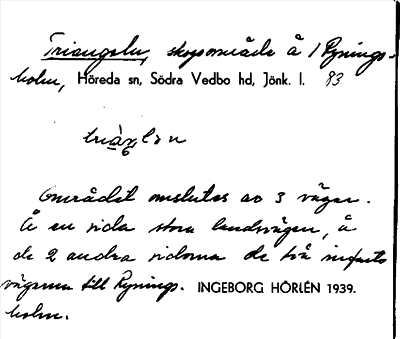 Triangeln, skogsområde å 1 Rynings-
holm, Höreda sn, Södra Vedbo hd, Jönk. l. 83
Området omslutes av 3 vägar.
Å en sida stora landsvägen, å
de 2 andra sidorna de två infarts
vägarna till Rynings-
holm.
INGEBORG HÖRLÉN 1939.